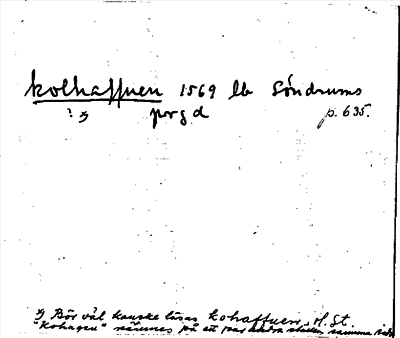 kolhaffuen 1569 lb Söndrums
? ⁎) prgd p. 635.
⁎) Bör väl kanske läsas kohaffuen. H. St.
"Kohagen" nämnes på ett par andra ställen samma sida